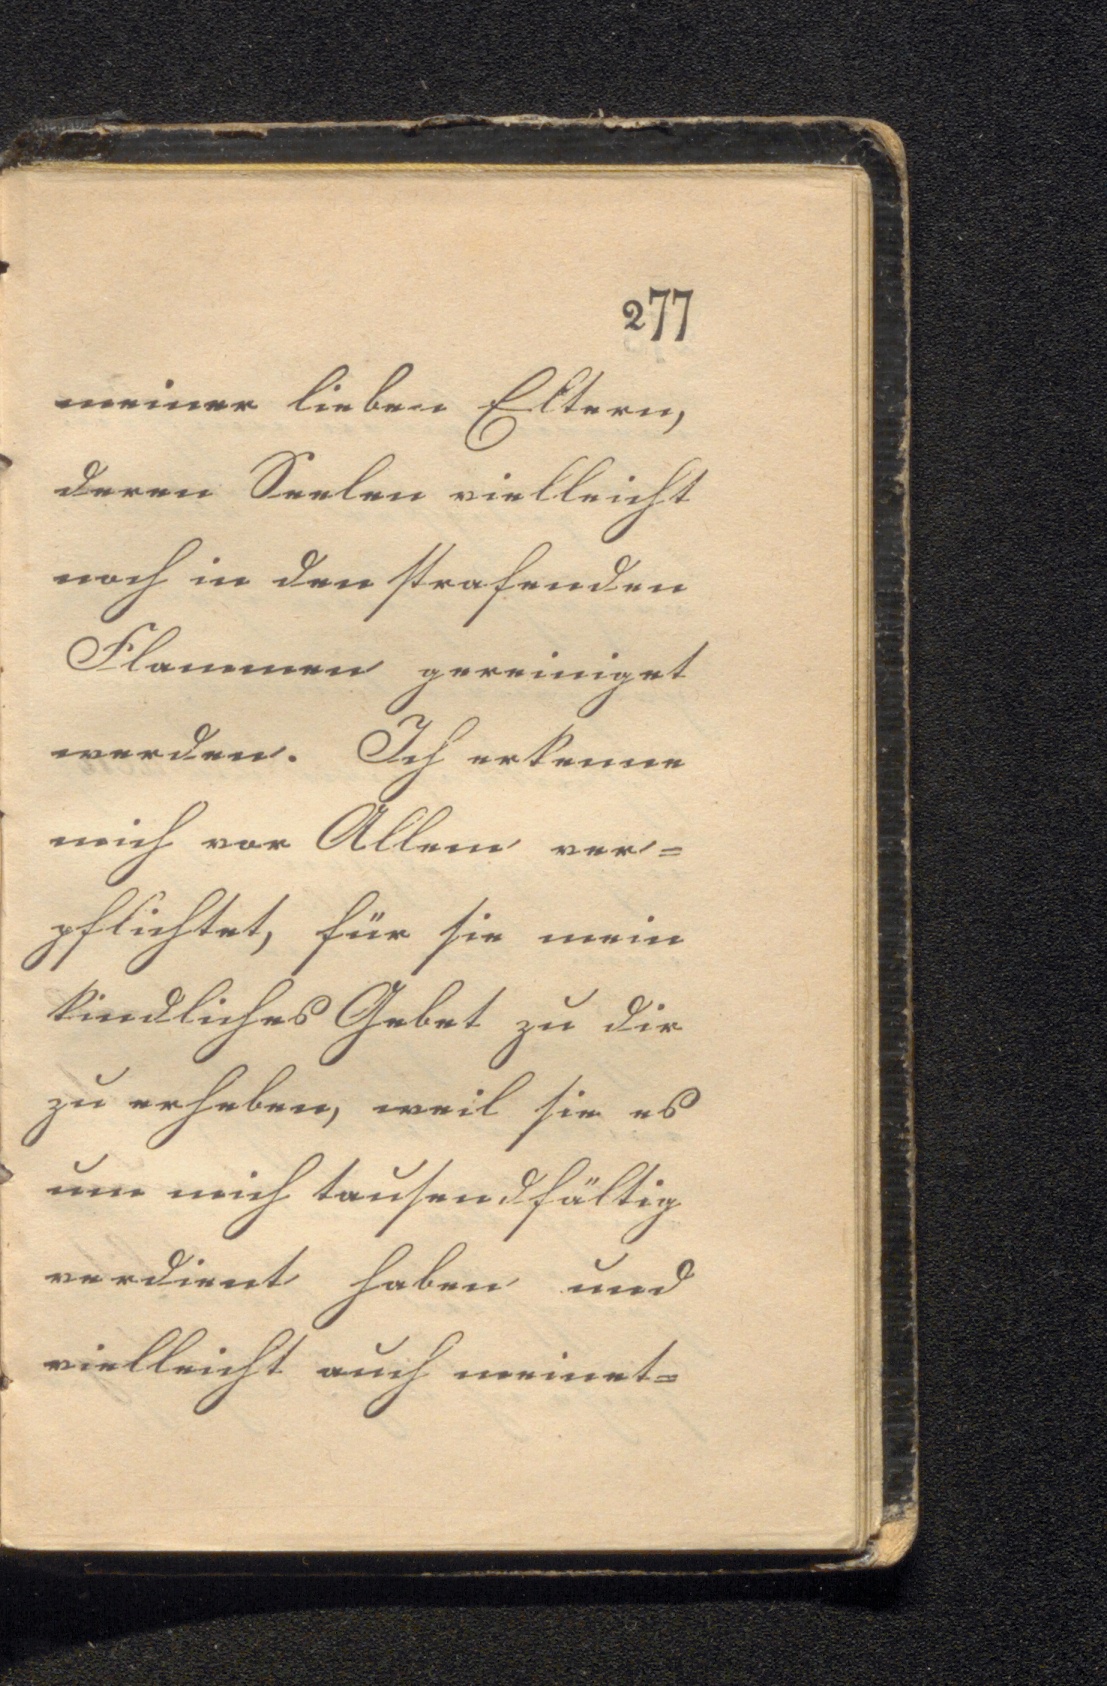 277
meiner lieben Eltern,
deren Seelen vielleicht
noch in den strafenden
Flammen gereiniget
werden. Ich erkenne
mich vor Allem ver=
pflichtet, für sie mein
kindliches Gebet zu dir
zu erheben, weil sie es
um mich tausendfältig
verdient haben und
vielleicht auch meinet=